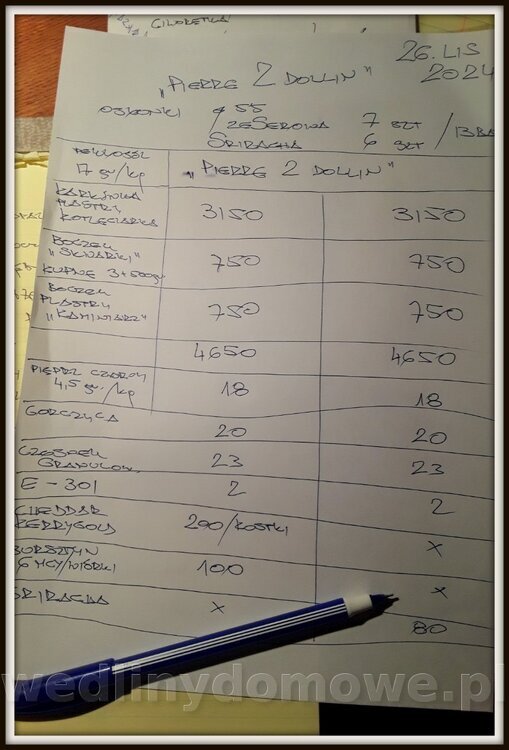 26. LIS
2024
"PIERRE 2 DOLLIN"
OSŁONKI ø 55
ZESEROWA 7 SZT
SRIRACHA 6 SZT / 13 BA
PEKLOSÓL
17 gr/kg
"PIERRE 2 DOLLIN"
KARKÓWKA
PLASTRY
KOTLECIARKA
3150 3150
BOCZEK
"SKWARKI"
KUPNE 3+500gr
750 750
BOCZEK
PLASTRY
"KAMINIARZ"
750 750
4650 4650
PIEPRZ CZARNY
4,5 gr/kg
18 18
GORCZYCA
20 20
CZOSNEK
GRANULOW.
23 23
E-301
2 2
CHEDDAR
KERRYGOLD
290/KOSTKI x
BURSZTYN
6 MCY/WIÓRKI
100 x
SRIRACHA
x 80
wedlinydomowe.pl